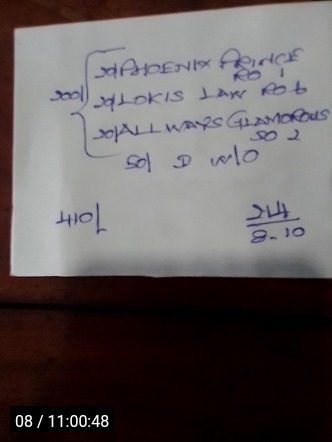 200/ 20/ PHOENIX PRINCE
RO 1
20/ LOKIS LAW RO 6
20/ ALL WAYS GLAMOROUS
SO 2
50/ D W/O
410/
2/4
8-10
08 / 11:00:48